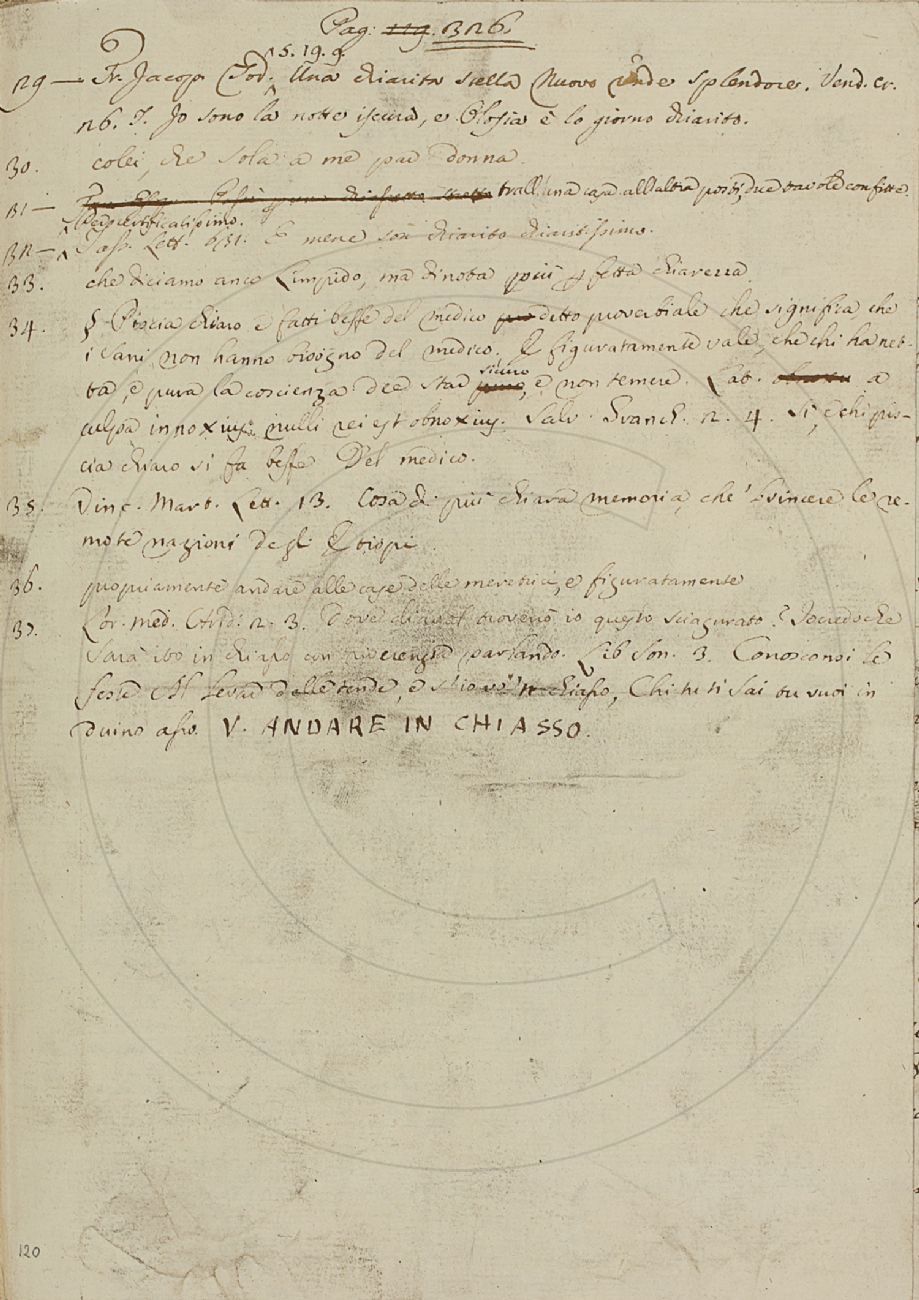 Pag: 119. 326.
5. 19. 9.
29 — Fr. Jacop. Tod. Una chiarita stella Nuovo rende splendore. Vend. Cr.
26. Io sono la notte iscura, e Blosia è lo giorno chiarito.
30. colei, che sola a me par donna.
31 — trall'una casa all'altra posti, due tavole confitte
Perspicuissimo.
32 — Tass. Lett. E mene son chiarito chiaritissimo.
33. che diciamo anco Limpido, ma dinota più perfetta chiarezza
34. § Piscia chiaro e fatti beffe del medico detto proverbiale che significa che
i sani non hanno bisogno del medico. E figuratamente vale, che chi ha net-
ta, e pura la coscienza dee star sicuro, e non temere. Lat. a
culpa innoxius nulli rei est obnoxius. Salv. Granch. 2. 4. Si, e chi pis-
cia chiaro si fa beffe Del medico.
35. Vinc. Mart. Lett. 13. Cosa di più chiara memoria, che 'l vincere le re-
mote nazioni degli Etiopi
36. propriamente andare alle case delle meretrici, e figuratamente
37. Lor. med. Arid. 2. 3. Dove diavol troverrò io questo sciagurato? Io credo che
sarà ito in chiasso con riverenza parlando. Lib. Son. 3. Conosconsi le
feste Al levar delle tende, e s'io vo 'n chiasso, Chi tu ti sai tu vuoi in
duino asso. V. ANDARE IN CHIASSO.
120